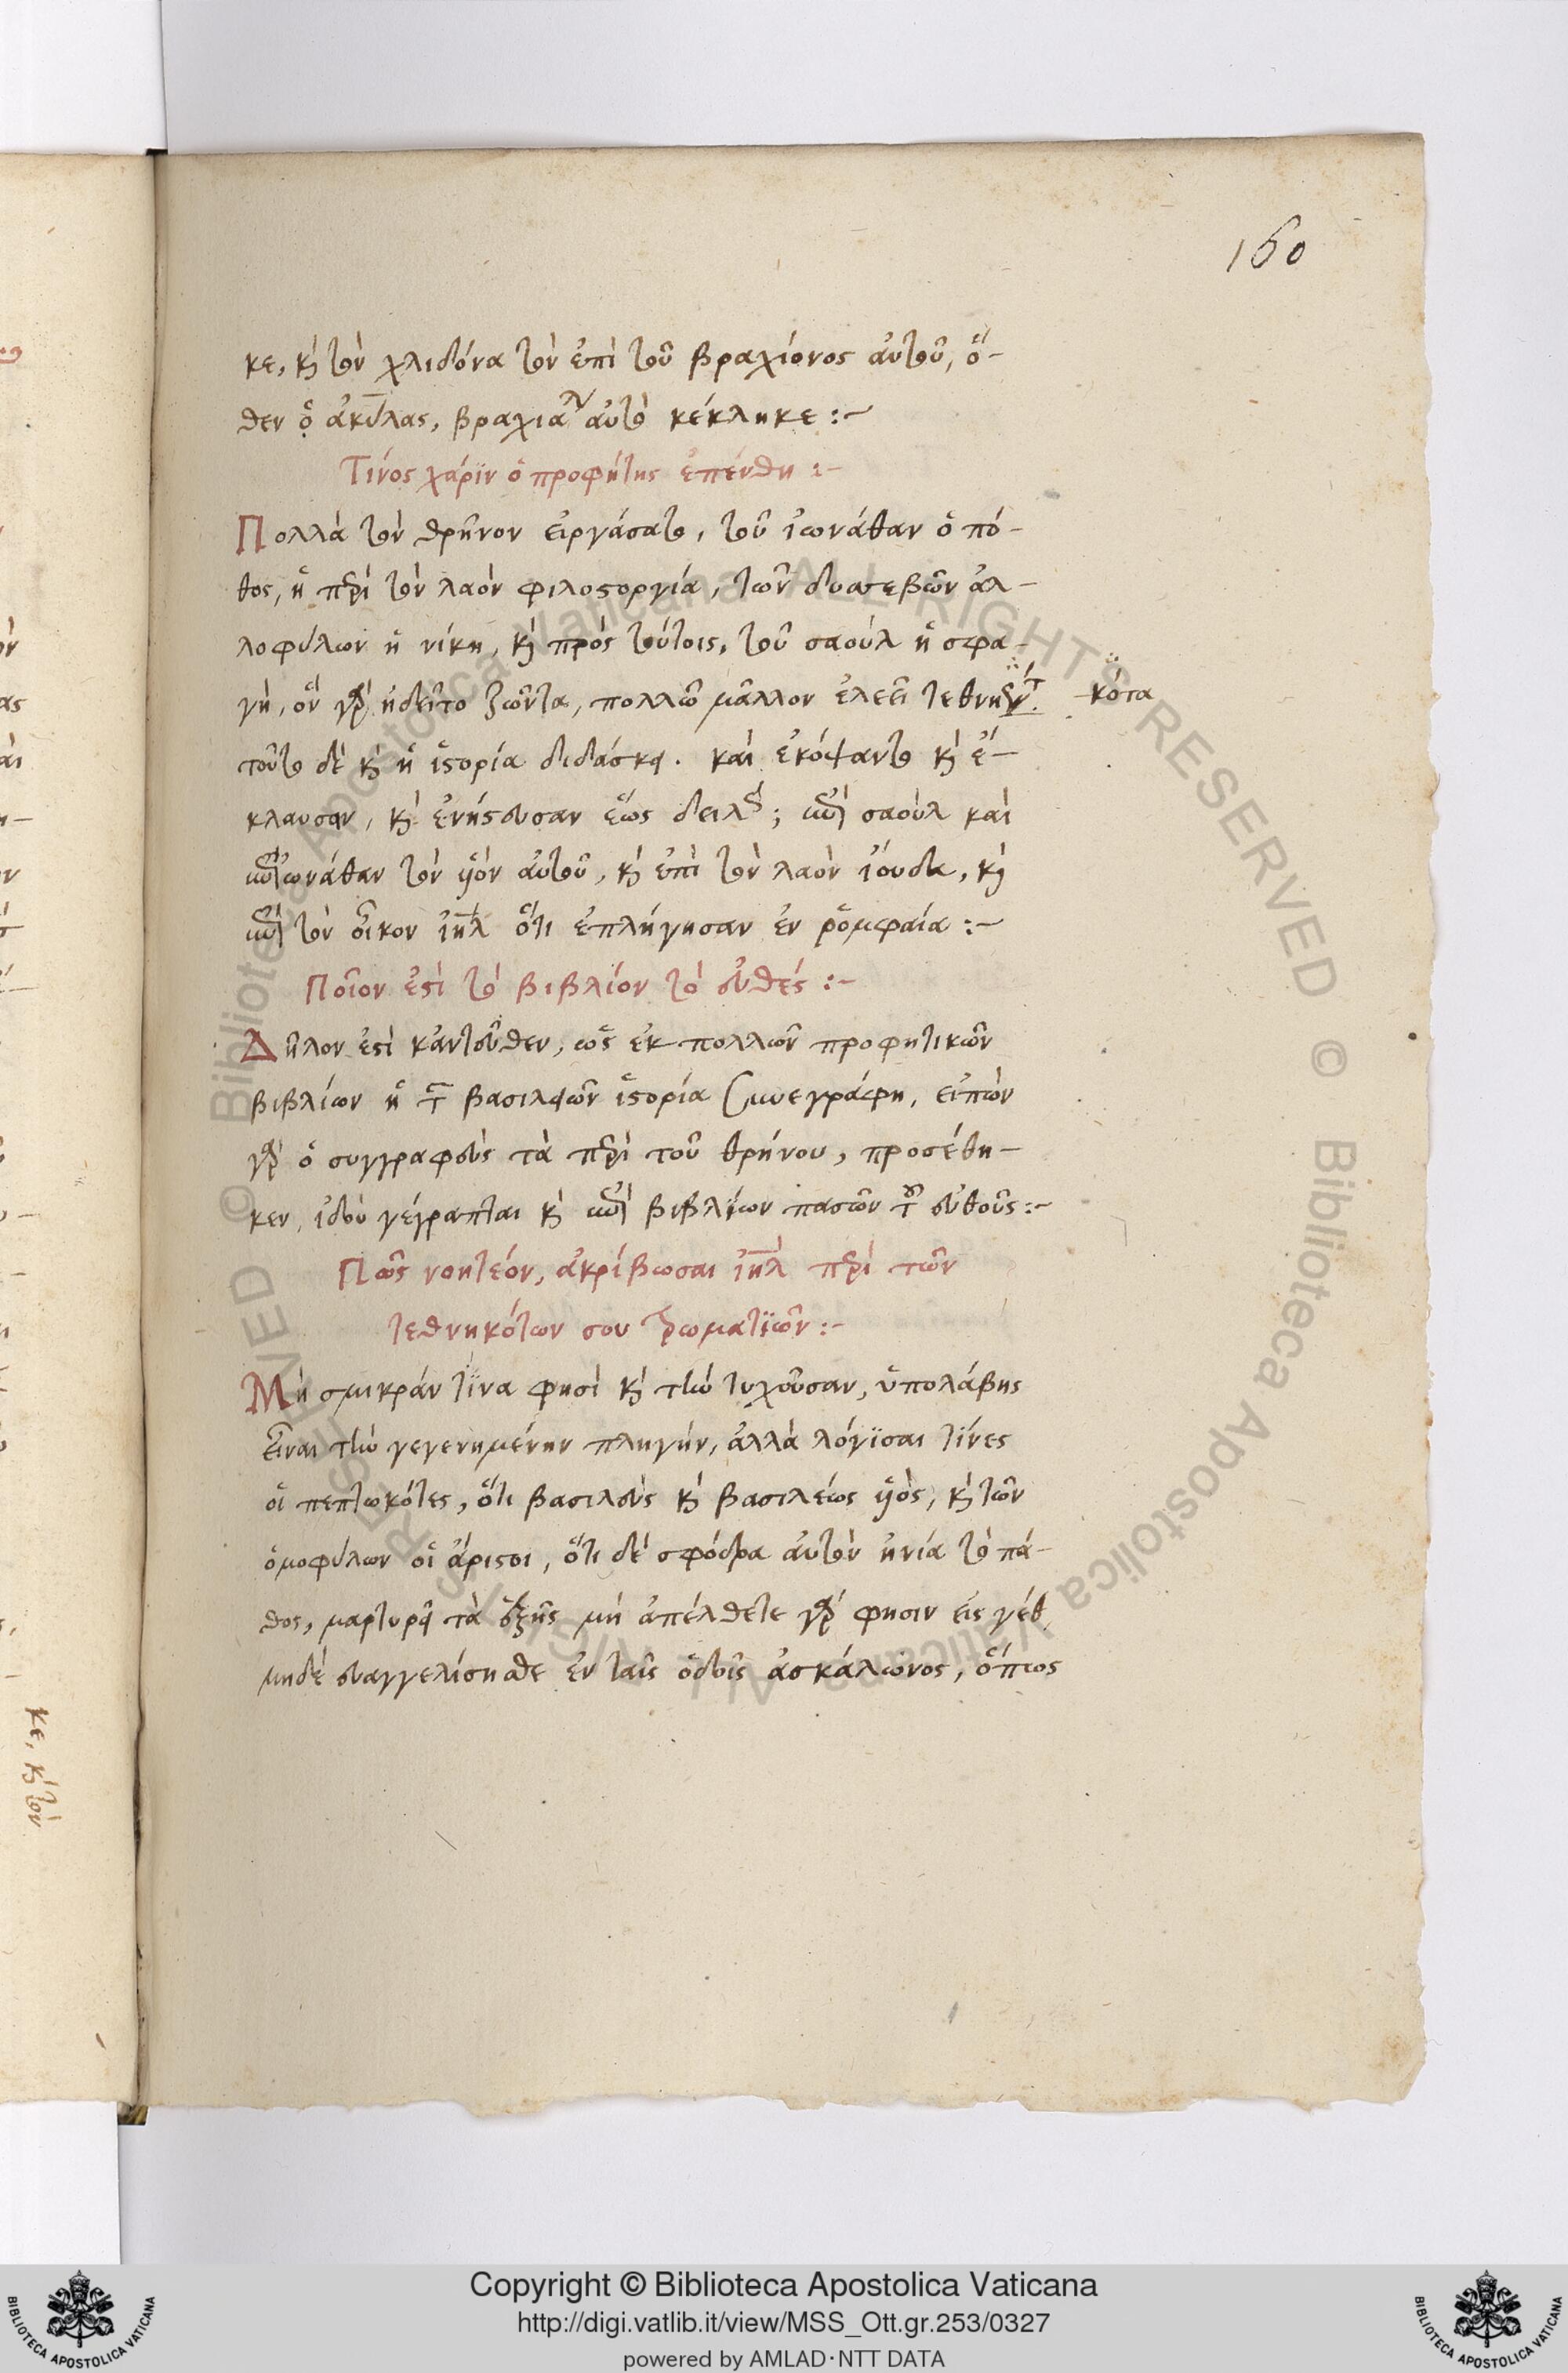 160
κε, κὴ τὸν χλιδόνα τὸν ἐπὶ τοῦ βραχίονος αὐτοῦ, ὅ-
θεν ὁ ἀκύλας, βραχιάλ αὐτὸ κέκληκε :-
Τίνος χάριν ὁ προφήτης ἐπένθη :-
Πολλὰ τὸν θρῆνον εἰργάσατο, τοῦ ἰωνάθαν ὁ πό-
θος, ἡ περὶ τὸν λαὸν φιλοστοργία, τῶν δυσσεβῶν ἀλ-
λοφύλων ἡ νίκη, κὴ πρὸς τούτοις, τοῦ σαοὺλ ἡ σφα-
γή, ὃν γὰρ ἠδεῖτο ζῶντα, πολλῶ μᾶλλον ἐλεεῖ τεθνη κότα
τοῦτο δὲ κὴ ἡ ἱστορία διδάσκει. καὶ ἐκόψαντο κὴ ἔ-
κλαυσαν, κὴ ἐνήστευσαν ἕως δείλης; ἐπὶ σαοὺλ καὶ
ἐπὶ ἰωνάθαν τὸν υἱὸν αὐτοῦ, κὴ ἐπὶ τὸν λαὸν ἰούδα, κὴ
ἐπὶ τὸν οἶκον ἰηλ ὅτι ἐπλήγησαν ἐν ῥομφαία :-
Ποῖον ἐστὶ τὸ βιβλίον τὸ εὐθές :-
Δῆλον ἐστὶ κἀντεῦθεν, ὡς ἐκ πολλῶν προφητικῶν
βιβλίων ἡ τῶν βασιλειῶν ἱστορία συνεγράφη, εἰπὼν
γὰρ ὁ συγγραφεὺς τὰ περὶ τοῦ θρήνου, προσέθη-
κεν, ἰδοὺ γέγραπται κὴ ἐπὶ βιβλίων πασῶν τοῦ εὐθοῦς :-
Πῶς νοητέον, ἀκρίβωσαι ἰηλ περὶ τῶν
τεθνηκότων σου τρωματιῶν :-
Μὴ σμικράν τινα φησὶ κὴ τὴν τυχοῦσαν, ὑπολάβης
εἶναι τὴν γεγενημένην πληγήν, ἀλλὰ λόγισαι τίνες
οἱ πεπτωκότες, ὅτι βασιλεὺς κὴ βασιλέως υἱὸς, κὴ τῶν
ὁμοφύλων οἱ ἄριστοι, ὅτι δὲ σφόδρα αὐτὸν ἠνία τὸ πά-
θος, μαρτυρεῖ τὰ ἑξῆς μὴ ἀπέλθετε γὰρ φησιν εἰς γέθ
μηδὲ εὐαγγελίσησθε ἐν ταῖς ὁδοῖς ἀσκάλωνος, ὅπως
κε, κὴ τὸν
Copyright © Biblioteca Apostolica Vaticana
http://digi.vatlib.it/view/MSS_Ott.gr.253/0327
powered by AMLAD·NTT DATA